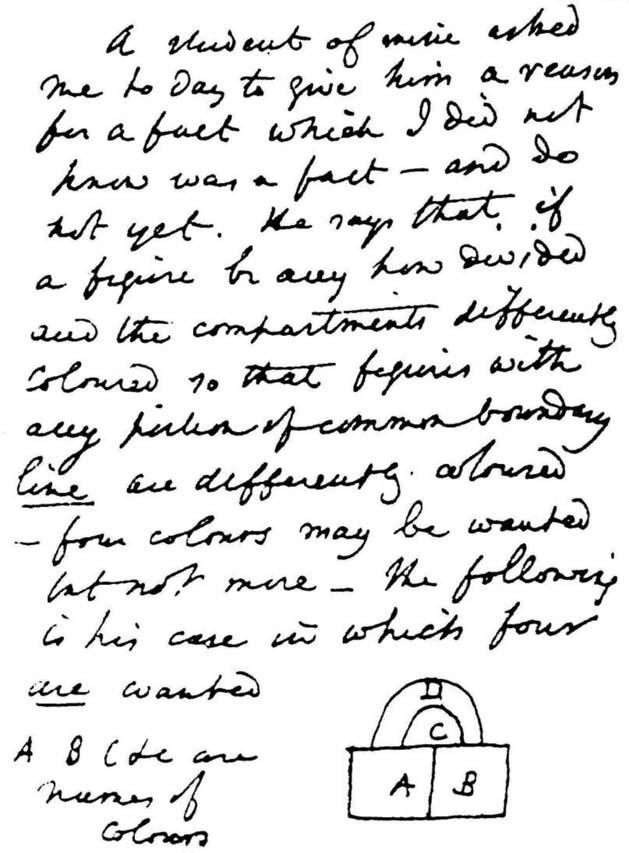 A student of mine asked
me to day to give him a reason
for a fact which I did not
know was a fact — and do
not yet. He says that, if
a figure be any how divided
and the compartments differently
coloured so that figures with
any portion of common boundary
line are differently coloured
— four colours may be wanted
but not more — The following
is his case in which four
are wanted
D
C
A B
A B C &c are
names of
colours